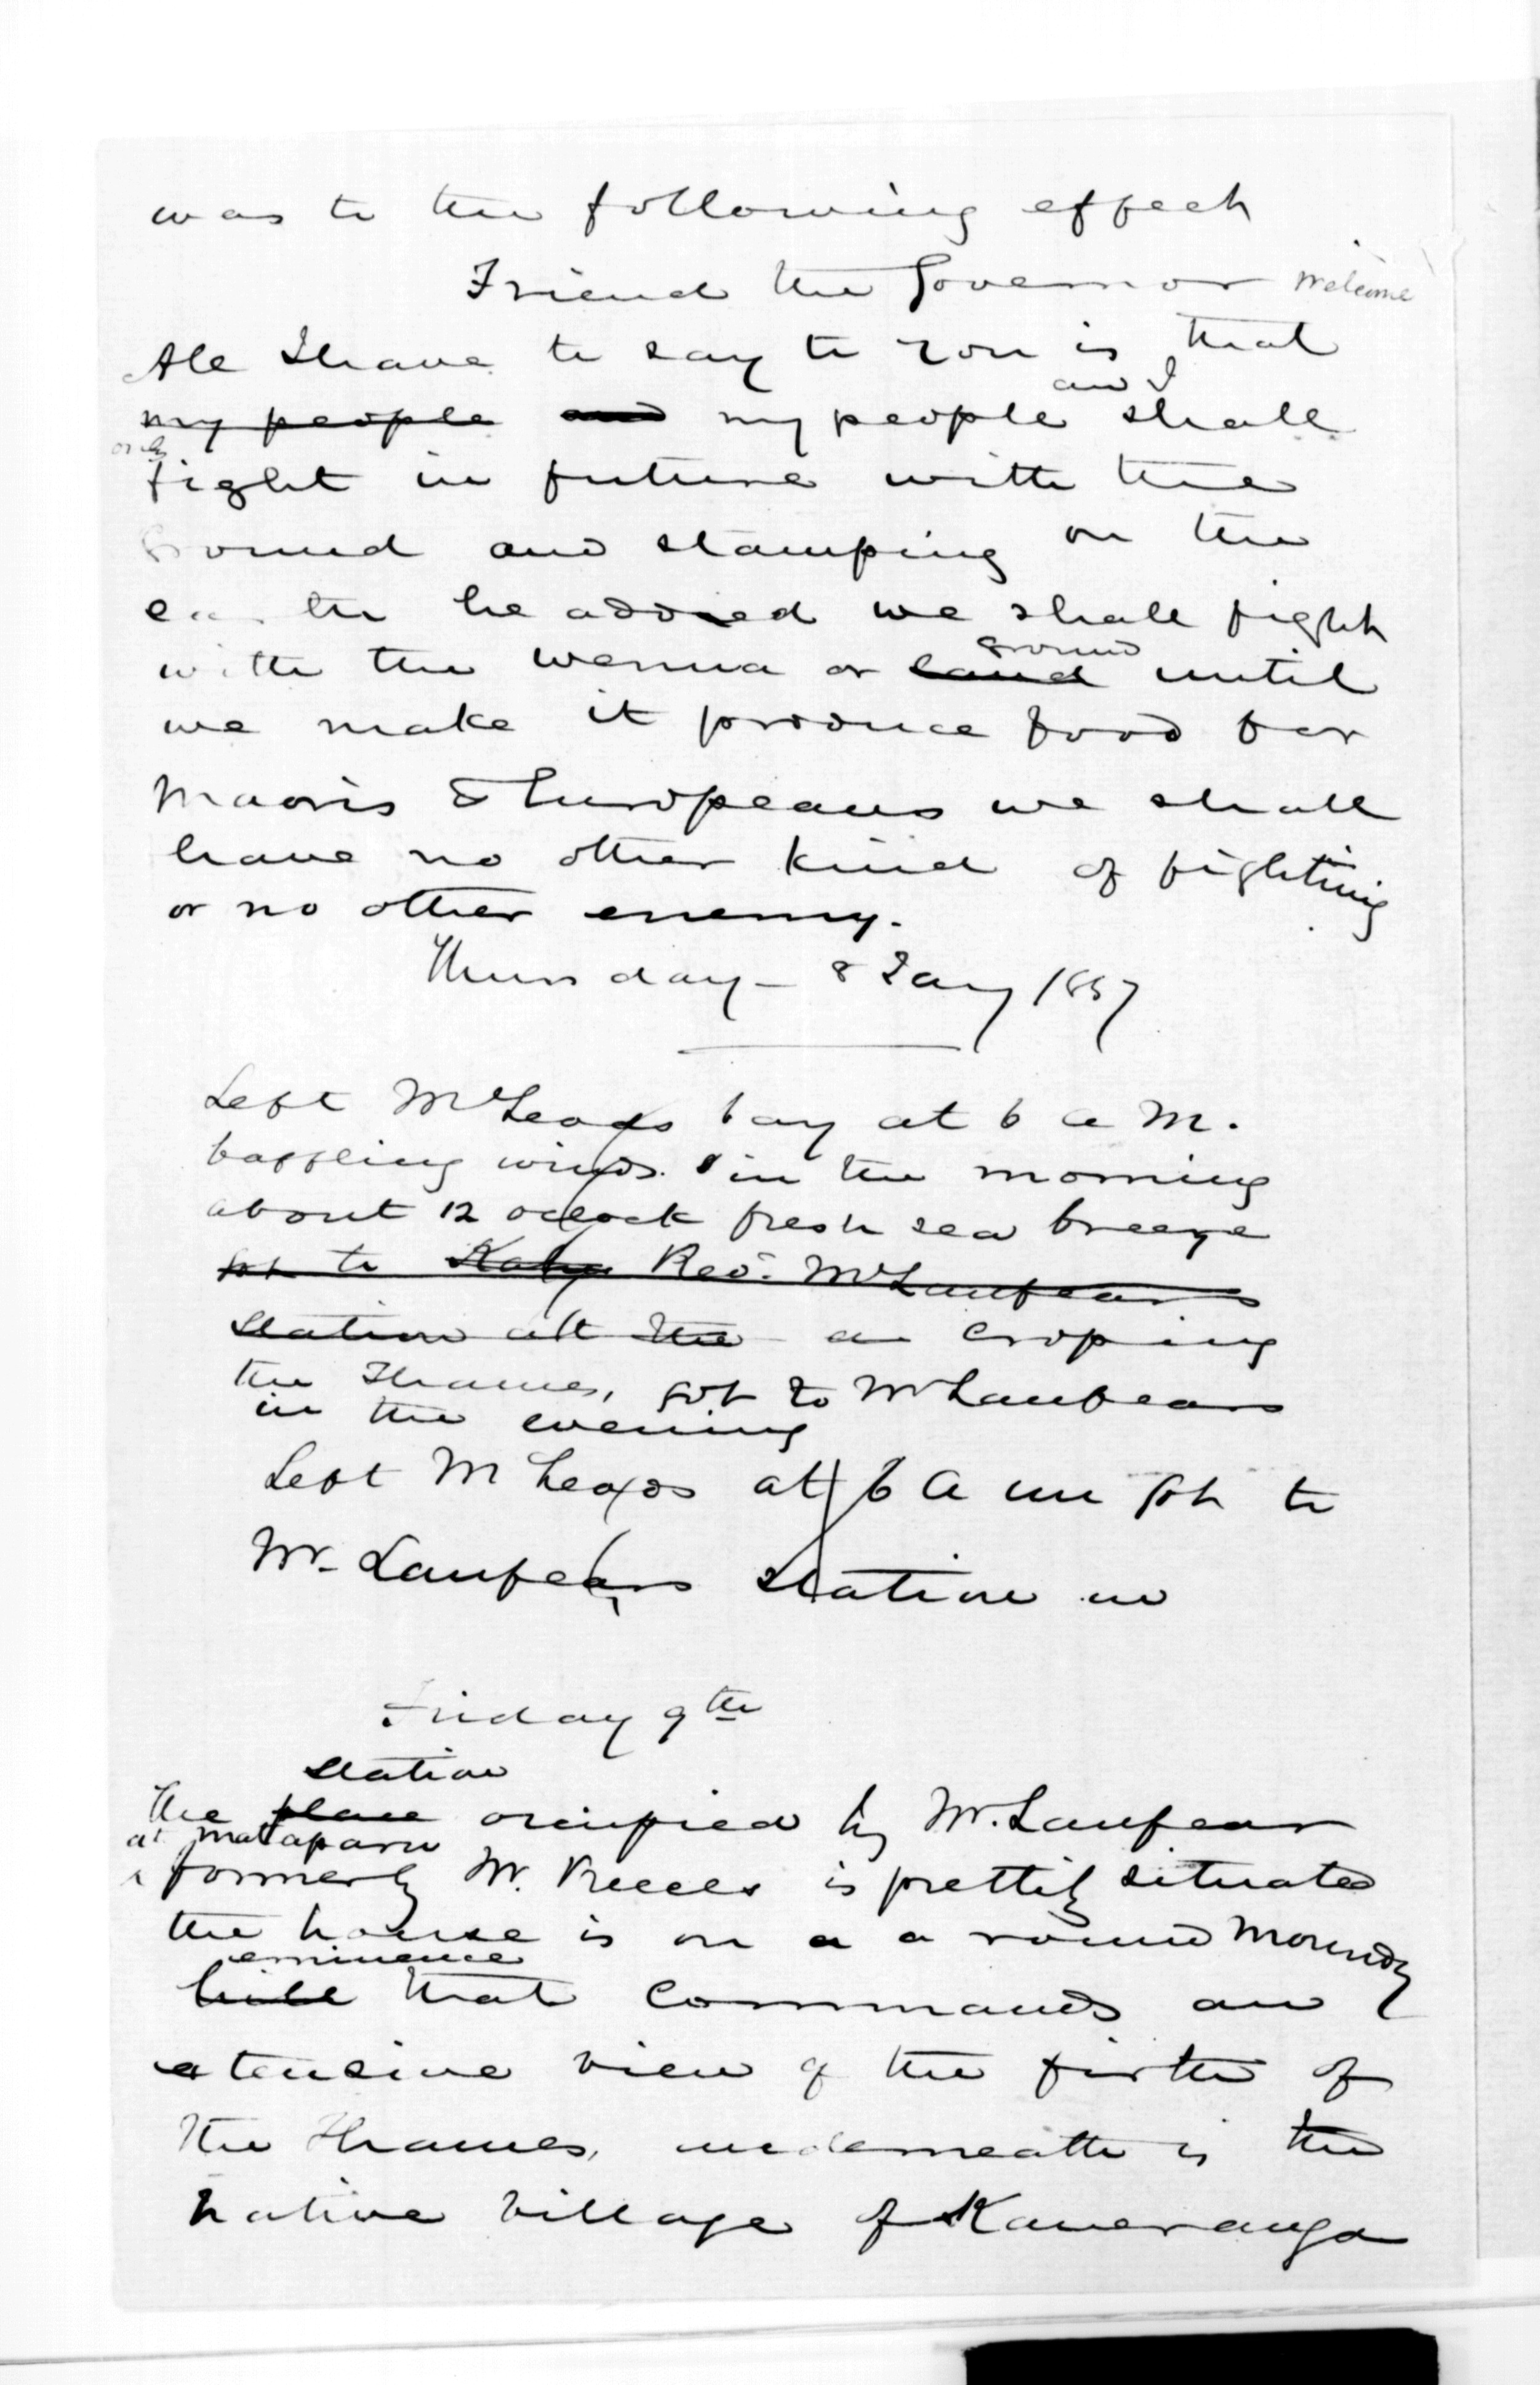 was to the following effect
Friend the Governor Welcome
All I have to say to you is that
my people and my people and I shall
only
fight in future with the
Ground and stamping on the
earth he added we shall fight
with the wenua or land ground until
we make it produce food for
Maoris & Europeans we shall
have no other kind of fighting
or no other enemy.
Thursday - 8 Jany 1857
Left McLeods bay at 6 a M.
baffling winds in the morning
about 12 oclock fresh sea breeze
got to Rev. Mr Lanfears
station at the croping
the Thames, got to Mr Lanfears
in the evening
Left McLeods at 6 a m got to
Mr. Lanfears station in
Friday 9th
station
The place occupied by Mr. Lanfear
at mataparu
formerly Mr. Preeces is prettily situated
the house is on a a round Moundy
eminence
hill that commands an
extensive view of the firth of
the Thames, underneath is the
native village of Kaueranga